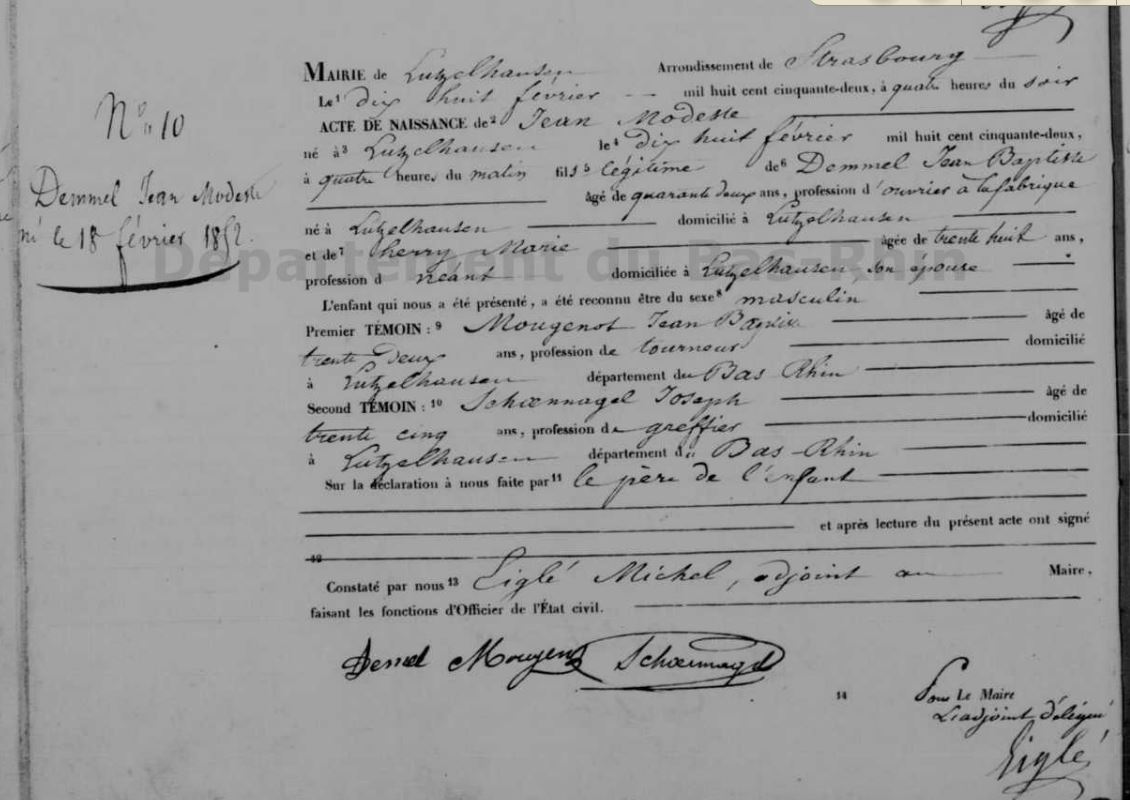 N° 10
Demmel Jean Modeste
né le 18 février 1852.
MAIRIE de Lutzelhausen Arrondissement de Strasbourg
Le¹ dix huit février mil huit cent cinquante-deux, à quatre heures du soir
ACTE DE NAISSANCE de² Jean Modeste
né à³ Lutzelhausen le⁴ dix huit février mil huit cent cinquante-deux,
à quatre heures du matin fils⁵ légitime de⁶ Demmel Jean Baptiste
âgé de quarante deux ans, profession d'ouvrier à la fabrique
né à Lutzelhausen domicilié à Lutzelhausen
et de⁷ Cherry Marie âgée de trente huit ans,
profession d néant domiciliée à Lutzelhausen, son épouse
L'enfant qui nous a été présenté, a été reconnu être du sexe⁸ masculin
Premier TÉMOIN : ⁹ Mougenot Jean Baptiste âgé de
trente deux ans, profession de tourneur domicilié
à Lutzelhausen département du Bas Rhin
Second TÉMOIN : ¹⁰ Schœnnagel Joseph âgé de
trente cinq ans, profession de greffier domicilié
à Lutzelhausen département du Bas-Rhin
Sur la déclaration à nous faite par¹¹ le père de l'enfant
et après lecture du présent acte ont signé
12
Constaté par nous¹³ Eiglé Michel, adjoint au Maire,
faisant les fonctions d'Officier de l'État civil.
Demel Mougenot Schœnnagel
14
Pour Le Maire
L'adjoint délégué
Eiglé
Département du Bas-Rhin